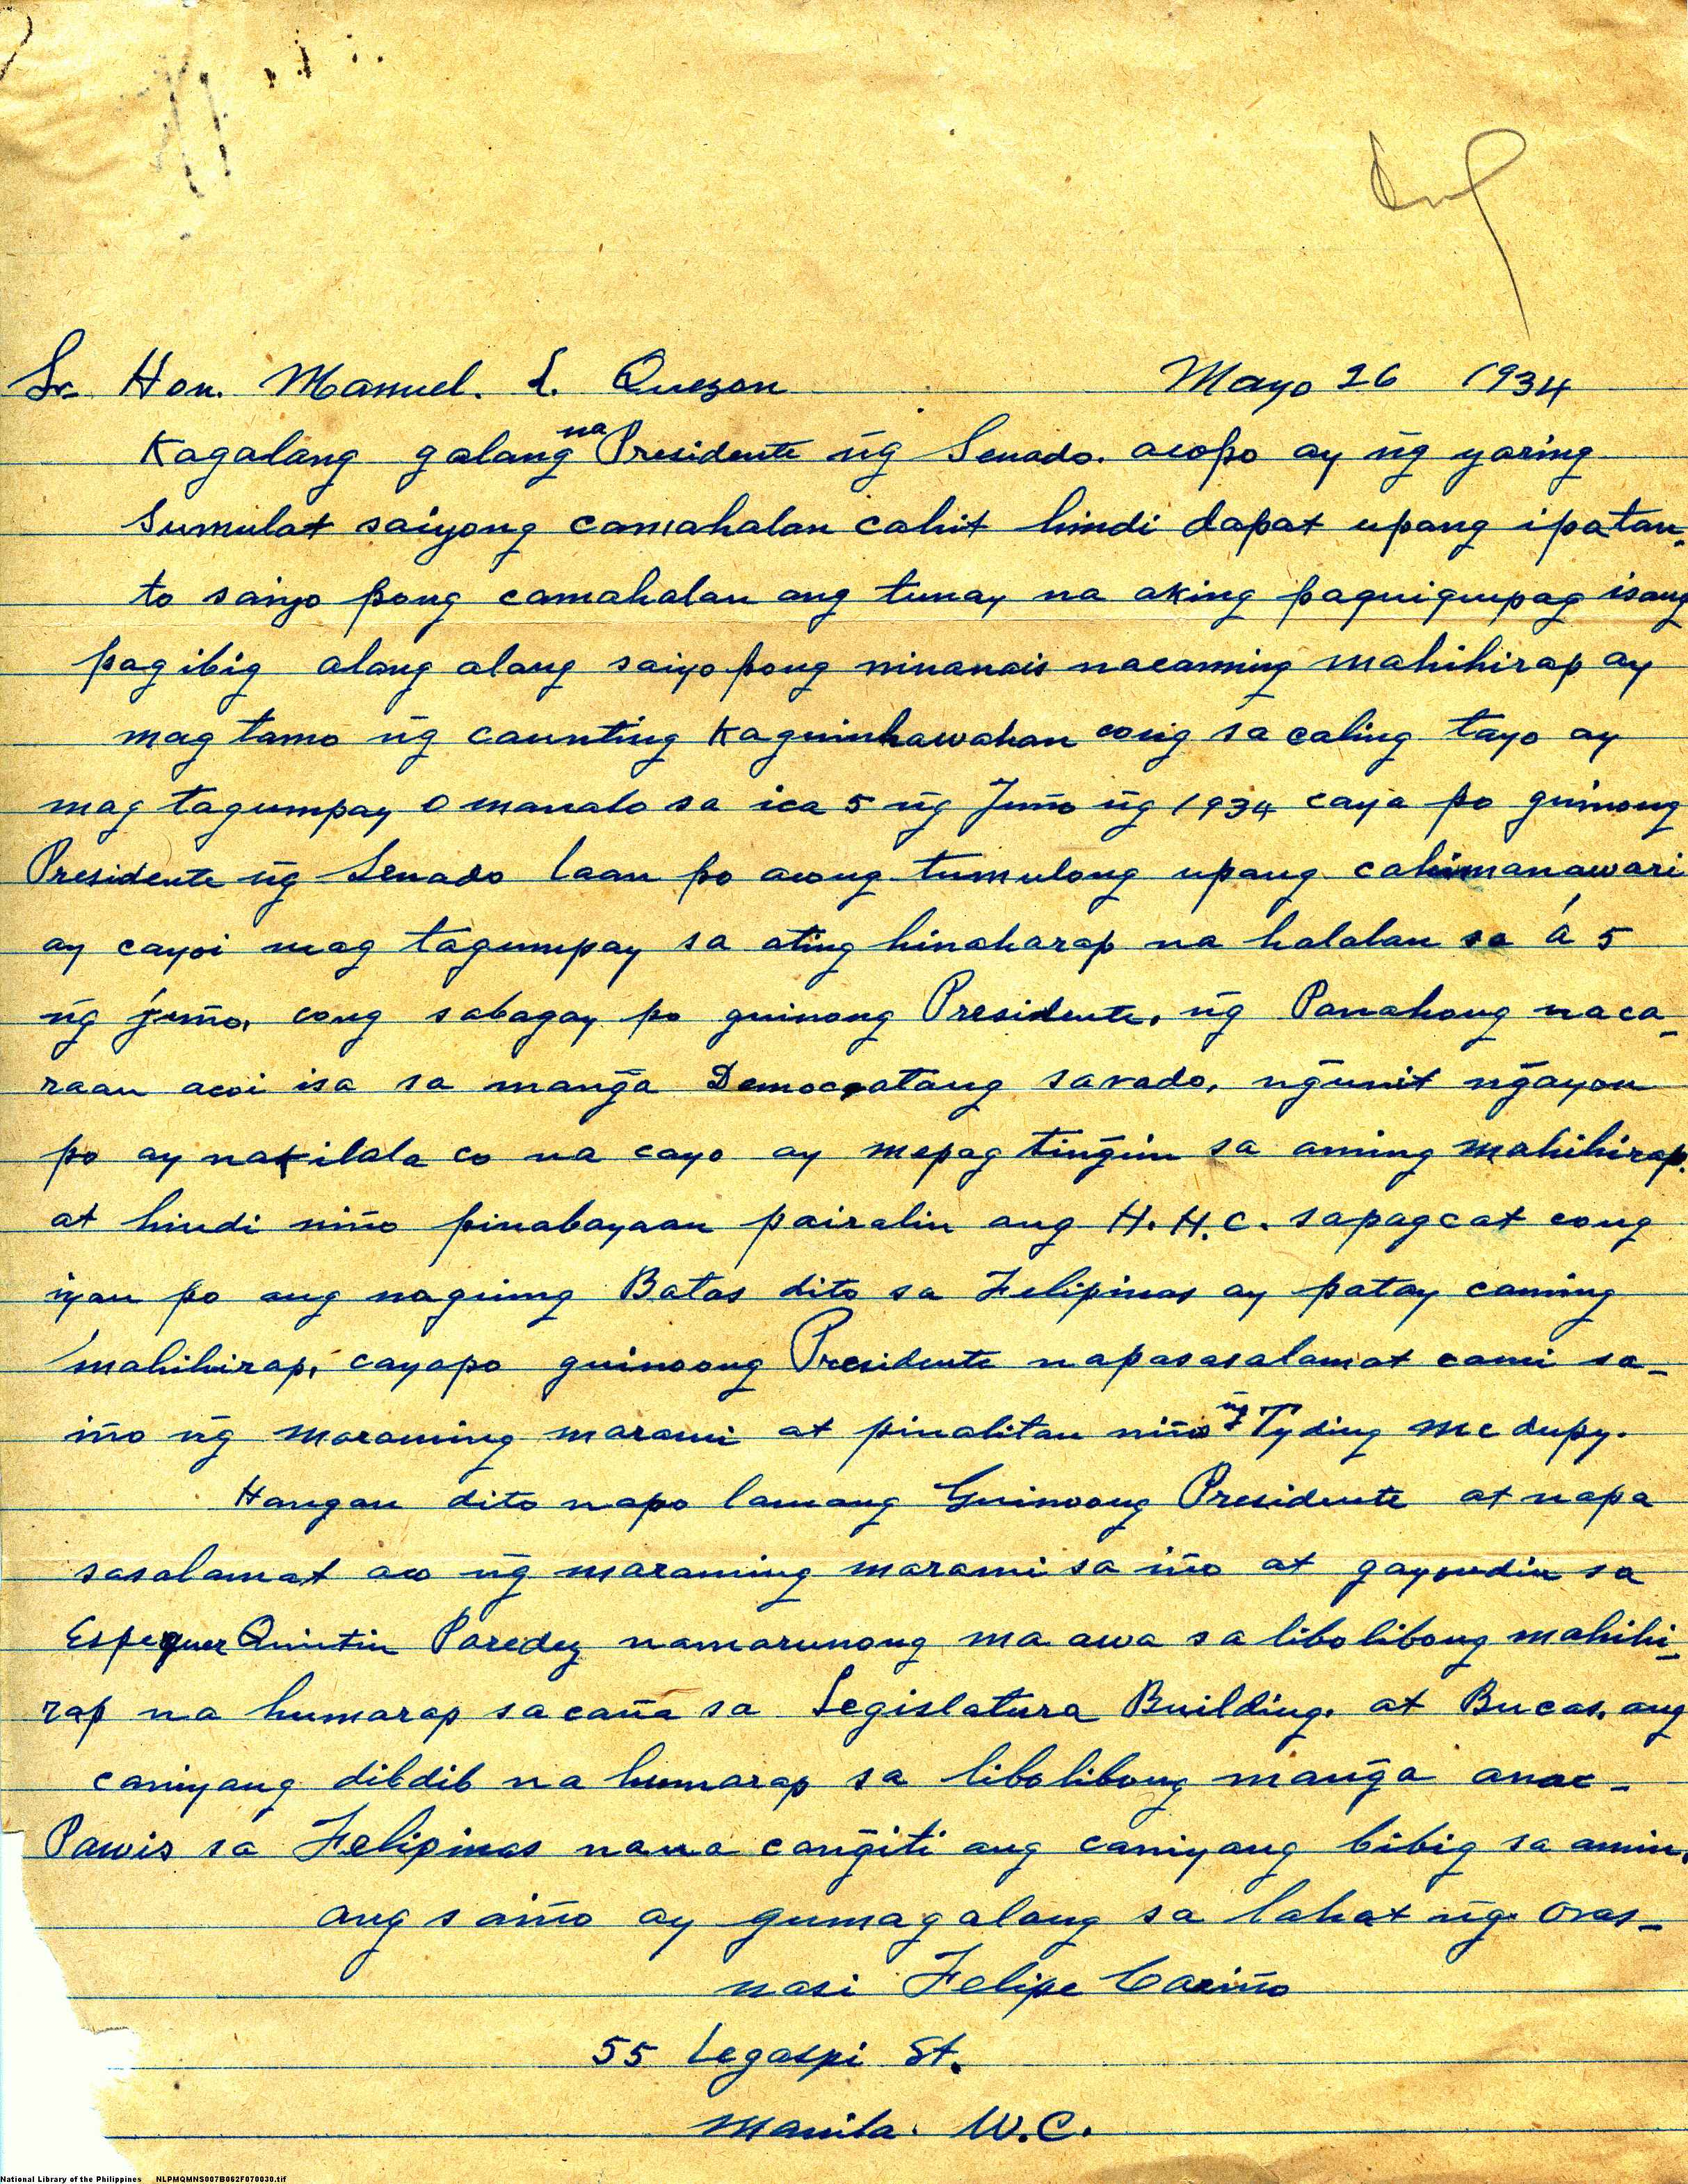 Sr. Hon. Manuel. L. Quezon Mayo 26 1934
Kagalang galang na Presidente ñg Senado. acopo ay ñg yaring
Sumulat saiyong camahalan cahit hindi dapat upang ipatan-
to saiyo pong camahalan ang tunay na aking paguiguipag isang
pag ibig alang alang saiyo pong ninanais nacaming mahihirap ay
mag tamo ñg caunting kaguinhawahan cong sa caling tayo ay
mag tagumpay O manalo sa ica 5 ñg Juño ñg 1934 caya po guinong
Presidente ñg Senado laan po acong tumulong upang cahimanawari
ay cayoi mag tagumpay sa ating hinaharap na halalan sa á 5
ñg juño, cong sabagay po guinong Presidente, ñg Panahong naca-
raan acoi isa sa manga Democratang sarado, ngunit ngayon
po ay nakilala co na cayo ay mepag tingin sa aming mahihirap.
at hindi niño pinabayaan pairalin ang H.H.C. sapagcat cong
iyan po ang naguing Batas dito sa Felipinas ay patay caming
mahihirap, cayapo guinoong Presidente napasasalamat cami sa-
iño ñg maraming marami at pinalitan niño ñg Tyding Mc dupy.
Hangan dito napo lamang Guinoong Presidente at napa
sasalamat aco ñg maraming marami sa iño at gayundin sa
Espequer Quintin Paredez namarunong ma awa sa libo libong mahihi-
rap na humarap sa caña sa Legislatura Building. at Bucas, ang
caniyang dibdib na humarap sa libo libong manga anac-
Pawis sa Felipinas nana cangiti ang caniyang bibig sa amin.
ang saiño ay gumagalang sa lahat ñg oras-
nasi Felipe Cariño
55 Legaspi St.
Manila. W.C.
National Library of the Philippines NLPMQMNS007B062F070030.tif